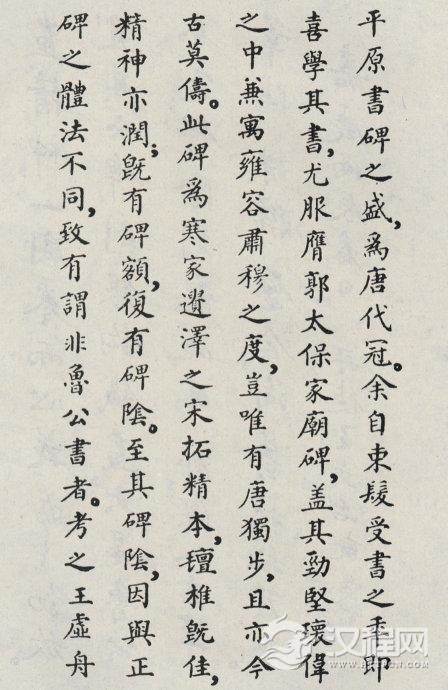 平原書碑之盛,爲唐代冠。余自束髮受書之季即
喜學其書,尤服膺郭太保家廟碑,盖其勁堅瓌偉
之中兼寓雍容肅穆之度,豈唯有唐獨步,且亦今
古莫儔。此碑爲寒家遺澤之宋拓精本,氊椎既佳,
精神亦潤;既有碑額,復有碑陰。至其碑陰,因與正
碑之體法不同,致有謂非魯公書者。考之王虛舟
汉程网